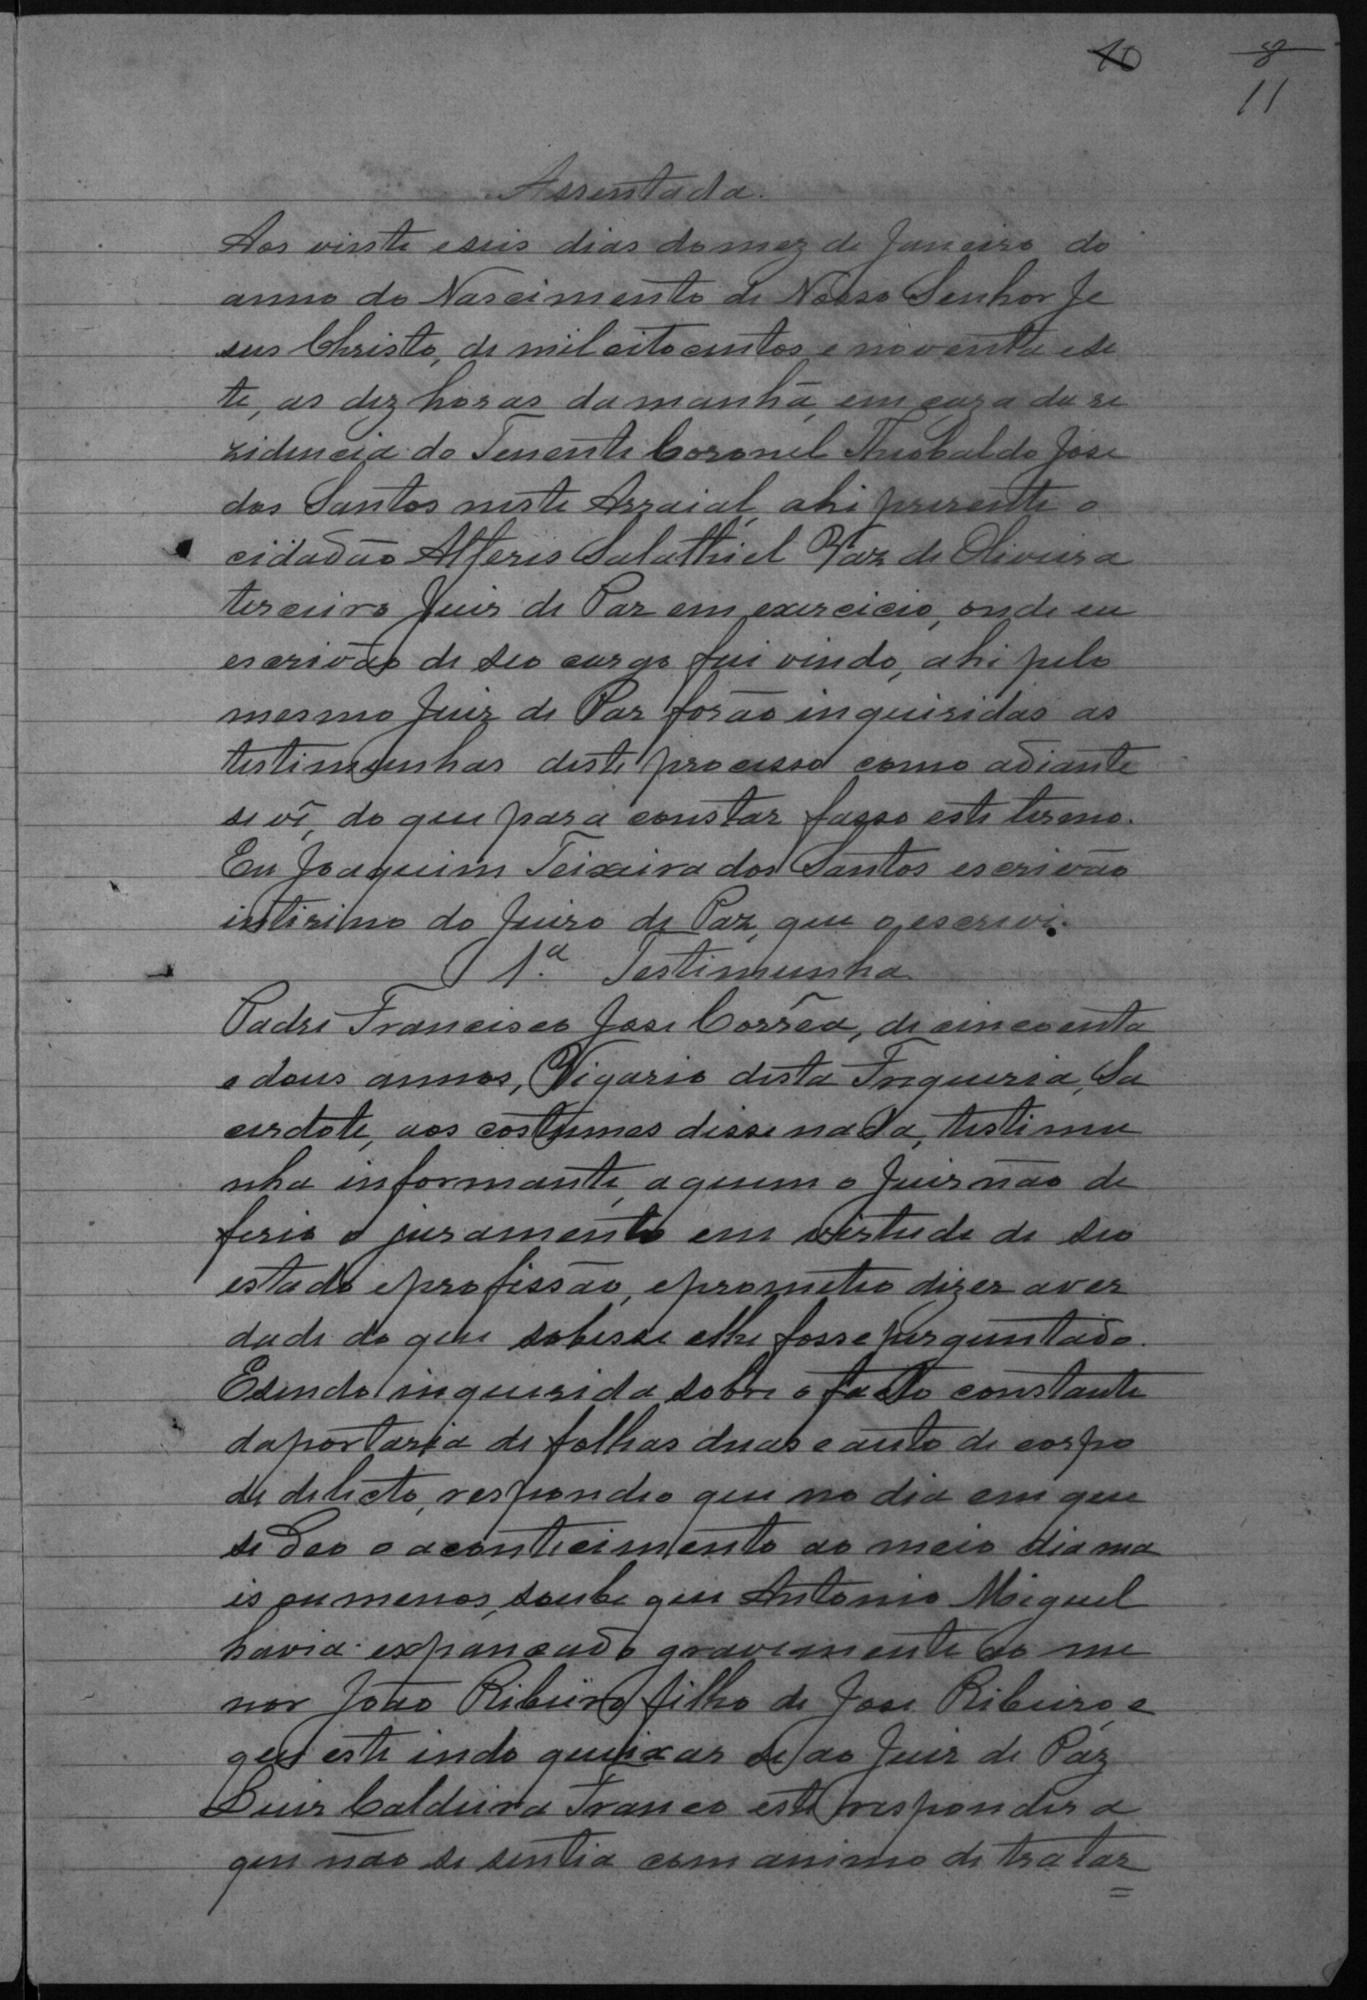 10 8
11
Assentada.
Aos vinte e seis dias do mez de Janeiro do
anno do Nascimento de Nosso Senhor Je
sus Christo, de mil oito centos e noventa e se
te, as dez horas da manhã, em caza da re
zidencia do Tenente Coronel Theobaldo Jose
dos Santos neste Arraial, ahi presente o
cidadão Alferes Salathiel Vaz de Oliveira
terceiro Juiz de Paz em exercicio, onde eu
escrivão de seo cargo fui vindo, ahi pelo
mesmo Juiz de Paz forão inquiridas as
testimunhas deste processo como adiante
se vê, do que para constar fasso este termo.
Eu Joaquim Teixeira dos Santos escrivão
interino do Juizo de Paz, que o escrevi.
1.ª Testimunha
Padre Francisco Jose Corrêa, de cincoenta
e dous annos, Vigario desta Fregueria, Sa
cerdote, aos costumes disse nada, testimu
nha informante, a quem o Juiz não de
ferio o juramento em virtude de seo
estado e profissão, e prometeo dizer a ver
dade do que sobesse e lhe fosse perguntado.
E sendo inquerida sobre o facto constante
da portaria de folhas duas e auto de corpo
de delicto, respondeo que no dia em que
se deo o acontecimento ao meio dia ma
is ou menos, soube que Antonio Miguel
havia expancado gravemente ao me
nor João Ribeiro filho de Jose Ribeiro, e
que este indo queixar se ao Juiz de Paz
Luiz Caldeira Franco este respondera
que não se sentia com animo de tratar